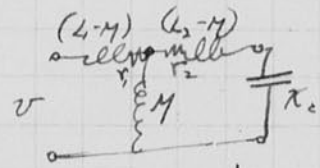 (L-M) (L₂-M)
r₁ r₂
v M X_c